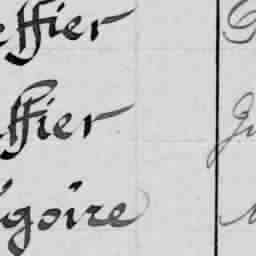 effier
ffier
goire